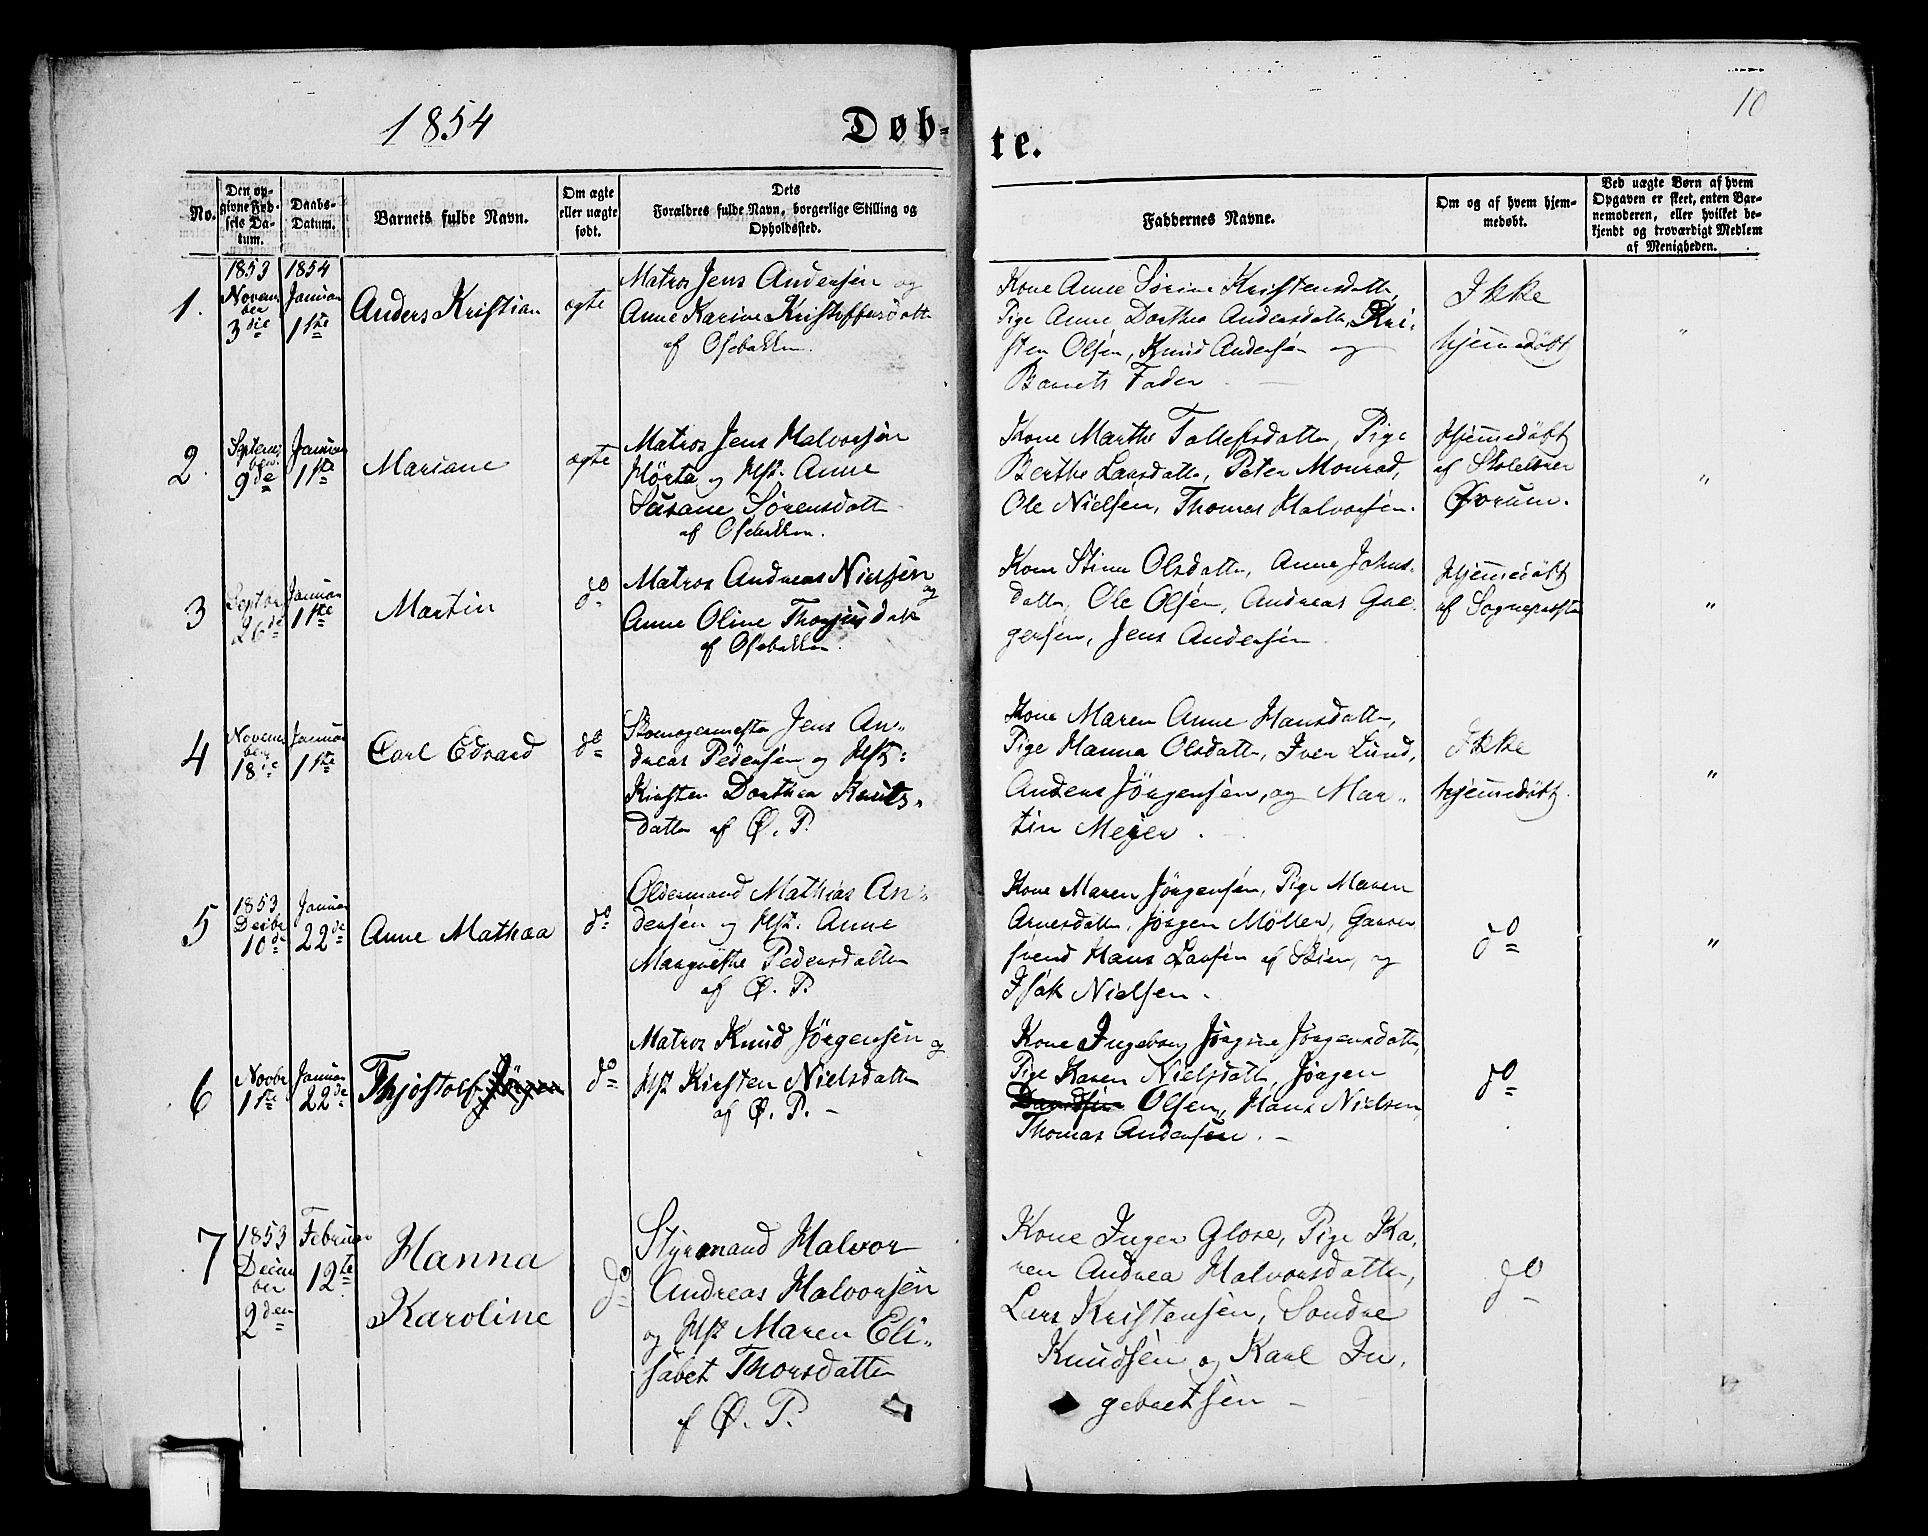 10
1854
Døb-
te.
No.
Den op-
givne Fød-
sels Da-
tum.
Daabs-
Datum.
Barnets fulde Navn.
Om ægte
eller uægte
født.
Dets
Forældres fulde Navn, borgerlige Stilling og
Opholdssted.
Faddernes Navne.
Om og af hvem hjem-
medøbt.
Ved uægte Børn af hvem
Opgaven er skeet, enten Bar-
nemoderen, eller hvilket be-
kjendt og troværdigt Medlem
af Menigheden.
1.
1853
Novem
ber
3die
1854
Januar
1ste
Anders Kristian
ægte
Matros Jens Andersen og
Anne Karine Kristoffersdatt
af Osebakken.
Kone Anne Sörine Kristensdatt,
Pige Anne Dorthea Andersdatt, Kri-
sten Olsen, Knud Andersen og
Barnets Fader
Ikke
hjemmedöbt
"
2.
Septem
ber
9de
Januar
1ste
Mariane
ægte
Matros Jens Halvorsen
Hörta og Hst. Anne
Susane Sörensdatt
af Osebakken.
Kone Marthe Tollefsdatte, Pige
Berthe Larsdatte, Peter Monrad,
Ole Nielsen, Thomas Halvorsen.
Hjemmedöbt
af Skolelærer
Øvrum.
"
3
Septbr
26de
Januar
1ste
Martin
do
Matros Andreas Nielsen
og
Anne Oline Thorsdatt
af Osebakken.
Kone Stine Olsdatte, Anne Johns-
datte, Ole Olsen, Andreas Gre-
gersen, Jens Andersen
Hjemmedöbt
af Sognepræsten
"
4
Novem
ber
18de
Januar
1ste
Carl Edvard
do
Skomagermester Jens An-
dreas Pedersen og Hst:
Kirsten Dorthea Knuts-
datte af Ø. P.
Kone Maren Anne Hansdatte,
Pige Hanna Olsdatte, Iver Lund,
Anders Jörgensen, og Mar-
tin Mejer.
Ikke
hjemmedöbt.
"
5
1853
Decbr
10de
Januar
22de
Anne Mathea
do
Oldermand Mathias An-
dersen og Hst. Anne
Margrethe Pedersdatten
af Ø. P.
Kone Maren Jörgensen, Pige Maren
Arnesdatte, Jörgen Möller, Garver
svend Hans Larsen af Skien, og
Isak Nielsen.
do
"
6
Novbr
1ste
Januar
22de
Thjostolf Jörgen
do
Matros Knud Jörgensen og
Hst Kirsten Nielsdatte
af Ø. P. -
Kone Ingeborg Jörgine Jörgensdatte,
Pige Karen Nielsdatt, Jörgen
Davidsen Olsen, Hans Nielsen,
Thomas Andersen. -
do
7
1853
Decem
ber
2den
Februar
12te
Hanna
Karoline
do
Styrmand Halvor
Andreas Halvorsen
og Hst Maren Eli-
sabet Thorsdatte
af Ø. P.
Kone Inger Glose, Pige Ka-
ren Andrea Halvorsdatte,
Lars Kristensen, Sondre
Knudsen og Karl In-
gebretsen -
do